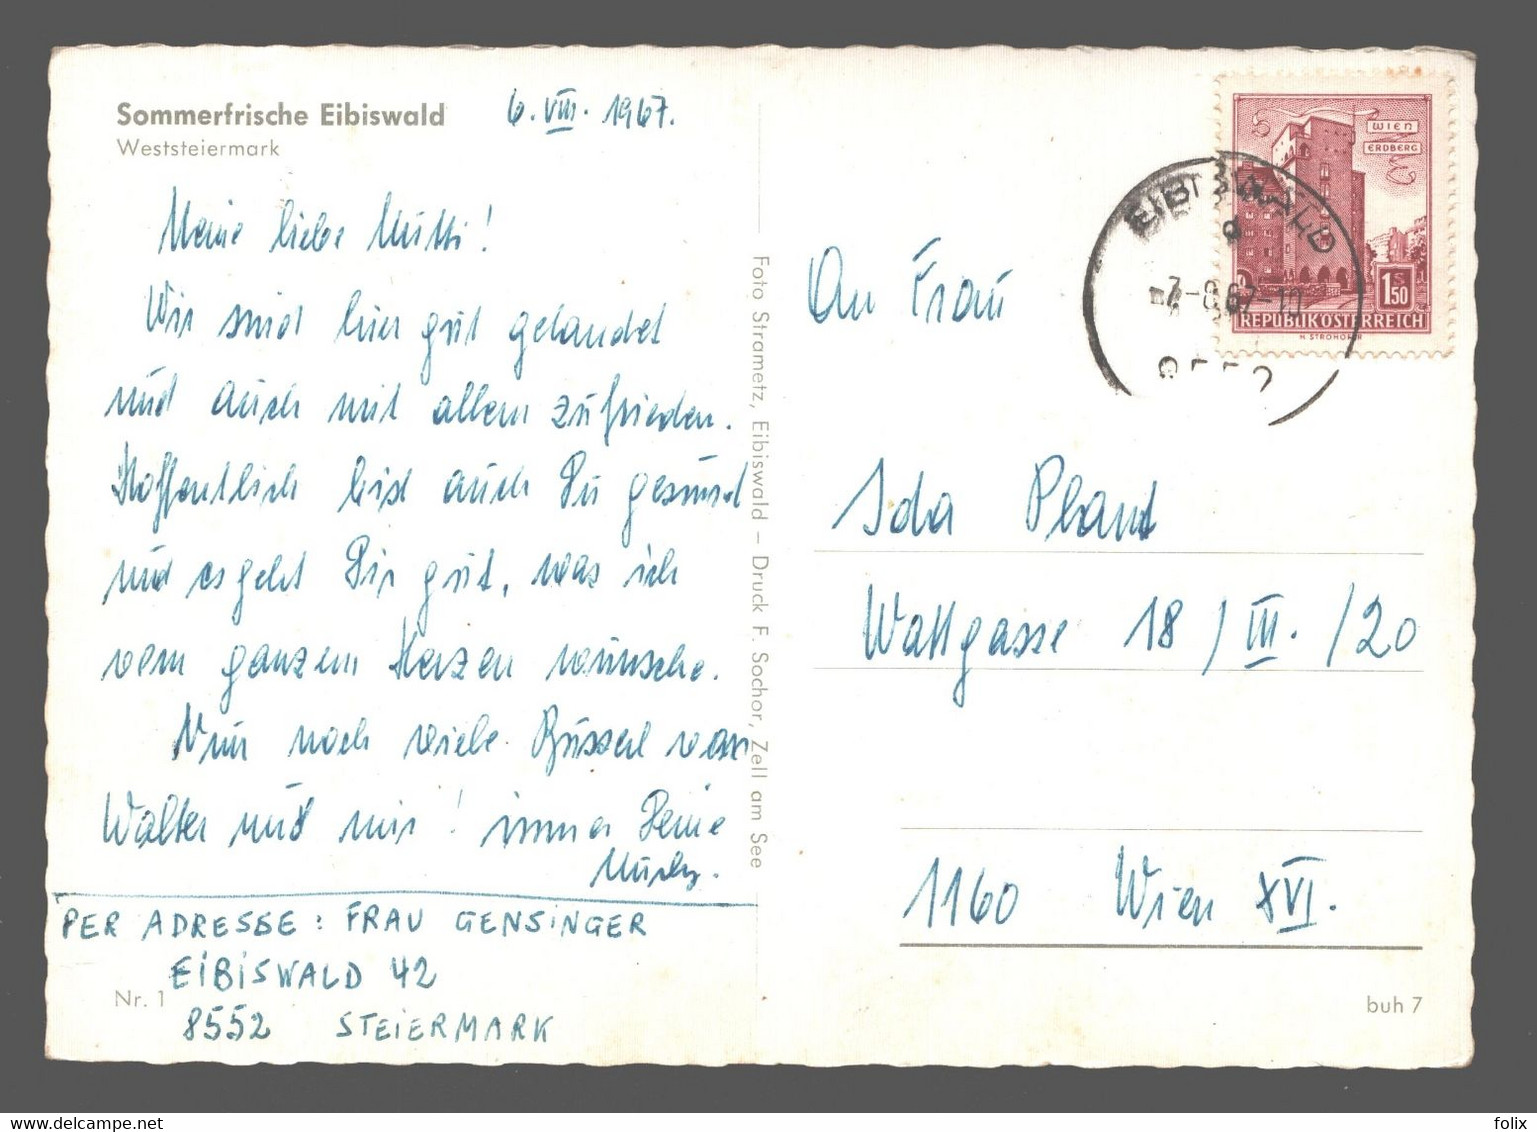 Sommerfrische Eibiswald
Weststeiermark
6. VIII. 1967.
Meine liebe Mutti!
Wir sind hier gut gelandet
und auch mit allem zufrieden.
Hoffentlich bist auch Du gesund
und es geht Dir gut, was ich
vom ganzem Herzen wünsche.
Nun noch viele Bussel von
Walter und mir! immer Deine
PER ADRESSE: FRAU GENSINGER
EIBISWALD 42
8552 STEIERMARK
Nr. 1
Foto Strametz, Eibiswald – Druck F. Sochor, Zell am See
WIEN
ERDBERG
1 S 50
REPUBLIK ÖSTERREICH
H. STROHOFER
EIBISWALD
a
-7.-8.67-10
8552
An Frau
Ida Pland
Wattgasse 18/III./20
1160 Wien XVI.
buh 7
www.delcampe.net
folix